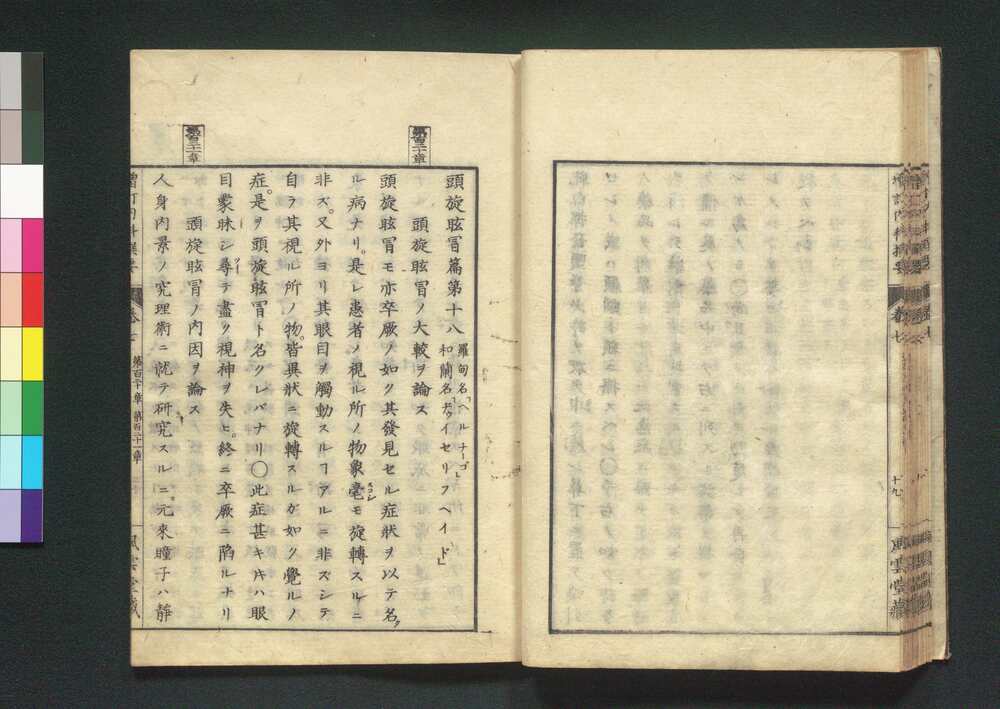 増訂内科撰要
巻七
十九
風雲堂藏
第百二十章
頭旋眩冒篇第十八
羅甸名「ヘルチーゴ」
和蘭名「ドゥイセリフヘイド」
頭旋眩冒ノ大較ヲ論ス
頭旋眩冒モ亦卒厥ノ如ク其發見セル症狀ヲ以テ名ク
ル病ナリ。是レ患者ノ視ル所ノ物象毫モ旋轉スルニ
非ズ。又外ヨリ其眼目ヲ觸動スルヿアルニ非ズシテ
自ラ其視ル所ノ物。皆異狀ニ旋轉スルガ如ク覺ルノ
症。是ヲ頭旋眩冒ト名クレバナリ〇此症甚キ片ハ眼
目曚昧シ尋テ盡ク視神ヲ失ヒ。終ニ卒厥ニ陷ルナリ
第百二十一章
頭旋眩冒ノ内因ヲ論ス
人身内景ノ究理術ニ就テ研究スルニ。元來瞳子ハ靜
第百二十章 第百二十一章